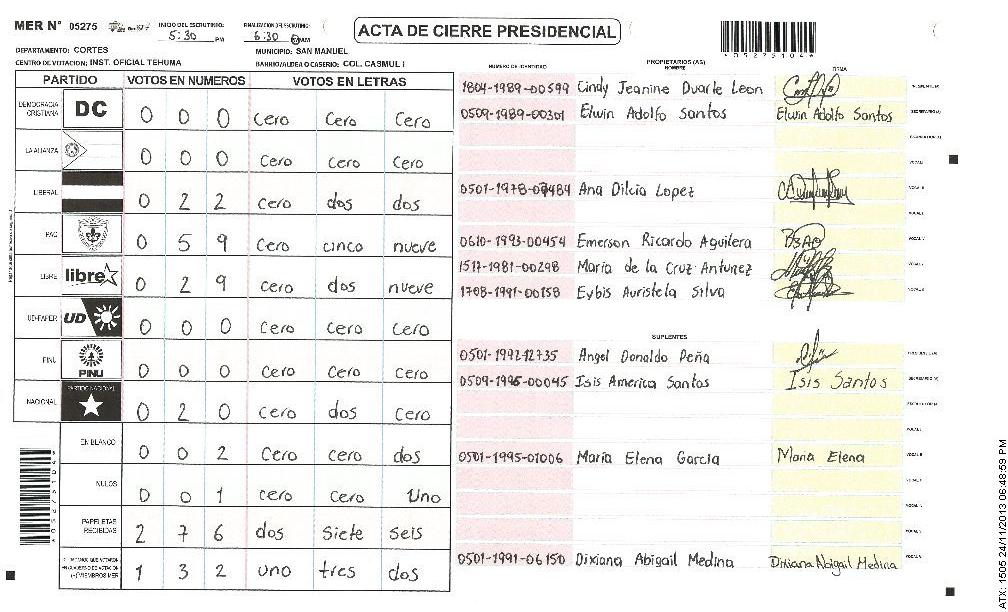 MER N° 05275
INICIO DEL ESCRUTINIO: 5:30 PM
FINALIZACION DEL ESCRUTINIO: 6:30 PM
ACTA DE CIERRE PRESIDENCIAL
*05275104*
DEPARTAMENTO: CORTES
MUNICIPIO: SAN MANUEL
CENTRO DE VOTACION: INST. OFICIAL TEHUMA
BARRIO/ALDEA O CASERIO: COL. CASMUL I
PARTIDO VOTOS EN NUMEROS VOTOS EN LETRAS
DEMOCRACIA CRISTIANA DC 0 0 0 Cero Cero Cero
LA ALIANZA 0 0 0 Cero Cero Cero
LIBERAL 0 2 2 Cero dos dos
PAC 0 5 9 Cero cinco nueve
LIBRE libre 0 2 9 cero dos nueve
UD-FAPER UD 0 0 0 Cero Cero Cero
PINU PINU 0 0 0 Cero Cero Cero
NACIONAL PARTIDO NACIONAL 0 2 0 Cero dos Cero
EN BLANCO 0 0 2 Cero cero dos
NULOS 0 0 1 cero Cero Uno
PAPELETAS RECIBIDAS 2 7 6 dos Siete seis
1 3 2 uno tres dos
NUMERO DE IDENTIDAD PROPIETARIOS (AS) NOMBRE FIRMA
1804-1989-00599 Cindy Jeanine Duarte Leon
0509-1989-00301 Elwin Adolfo Santos Elwin Adolfo Santos
Ana Dilcia Lopez
0610-1993-00454 Emerson Ricardo Aguilera
1517-1981-00298 Maria de la Cruz Antunez
1708-1991-00158 Eybis Auristela Silva
SUPLENTES
0501-1992-12735 Angel Donaldo Peña
0509-1995-00045 Isis America Santos Isis Santos
0501-1995-01006 Maria Elena Garcia Maria Elena
0501-1991-06150 Dixiana Abigail Medina Dixiana Abigail Medina
ATX: 1505 24/11/2013 06:48:59 PM